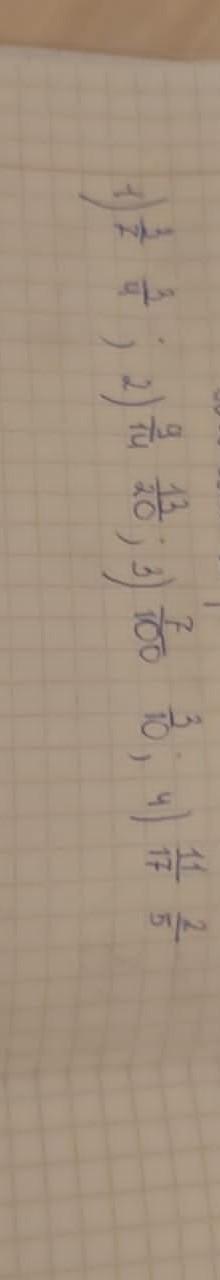 1) 3/7 3/4 ; 2) 9/14 13/20 ; 3) 7/100 3/10 ; 4) 11/17 2/5